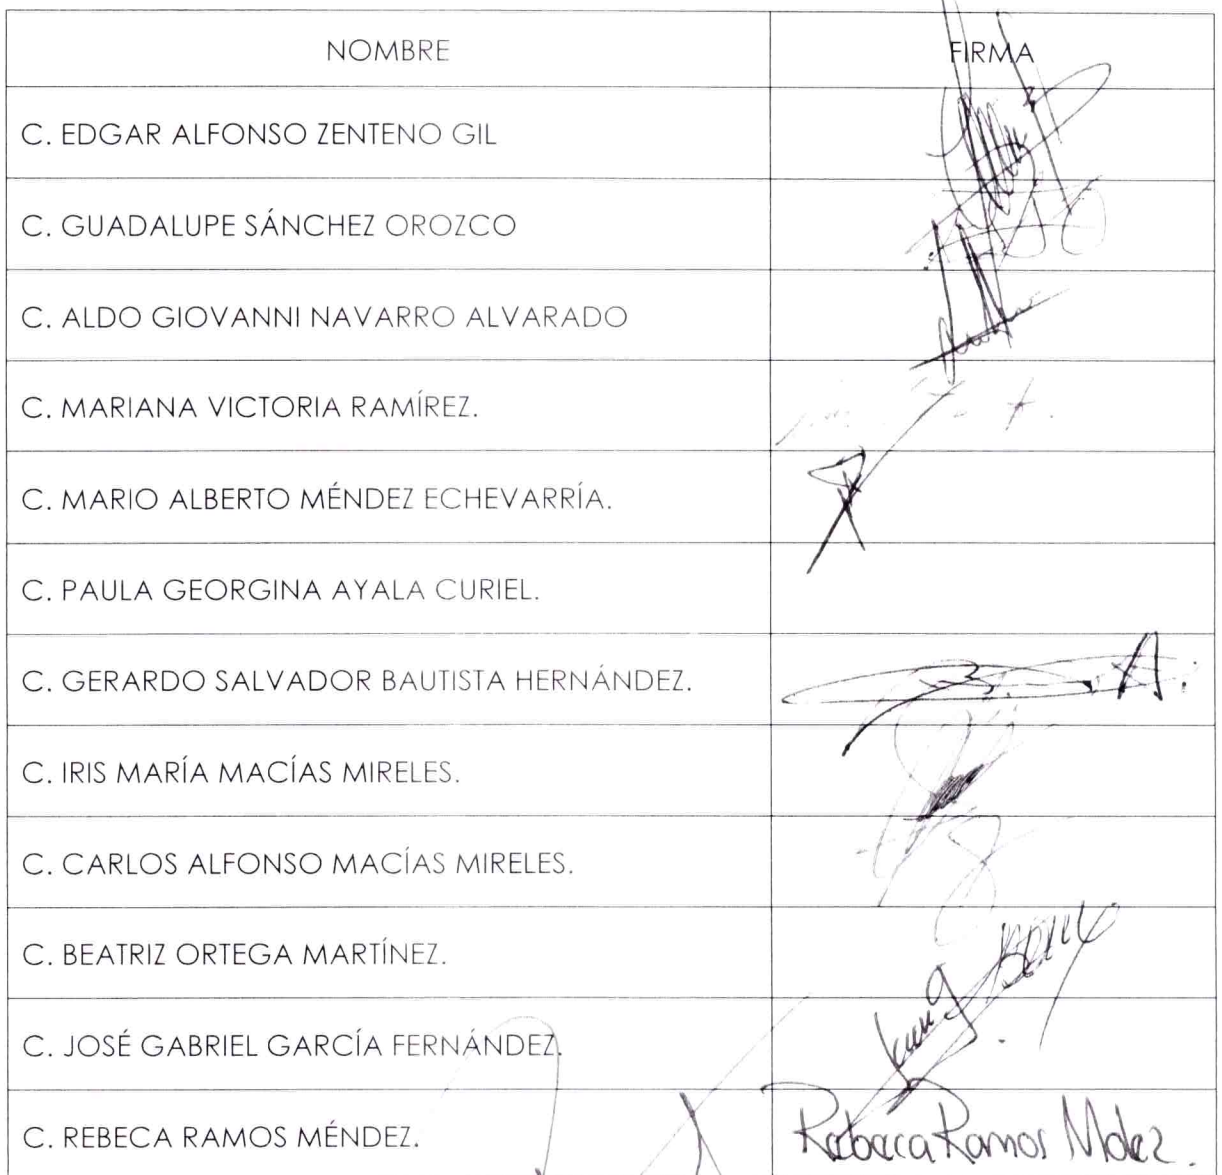 NOMBRE FIRMA
C. EDGAR ALFONSO ZENTENO GIL
C. GUADALUPE SÁNCHEZ OROZCO
C. ALDO GIOVANNI NAVARRO ALVARADO
C. MARIANA VICTORIA RAMÍREZ.
C. MARIO ALBERTO MÉNDEZ ECHEVARRÍA.
C. PAULA GEORGINA AYALA CURIEL.
C. GERARDO SALVADOR BAUTISTA HERNÁNDEZ.
C. IRIS MARÍA MACÍAS MIRELES.
C. CARLOS ALFONSO MACÍAS MIRELES.
C. BEATRIZ ORTEGA MARTÍNEZ.
C. JOSÉ GABRIEL GARCÍA FERNÁNDEZ.
C. REBECA RAMOS MÉNDEZ. Rebeca Ramos